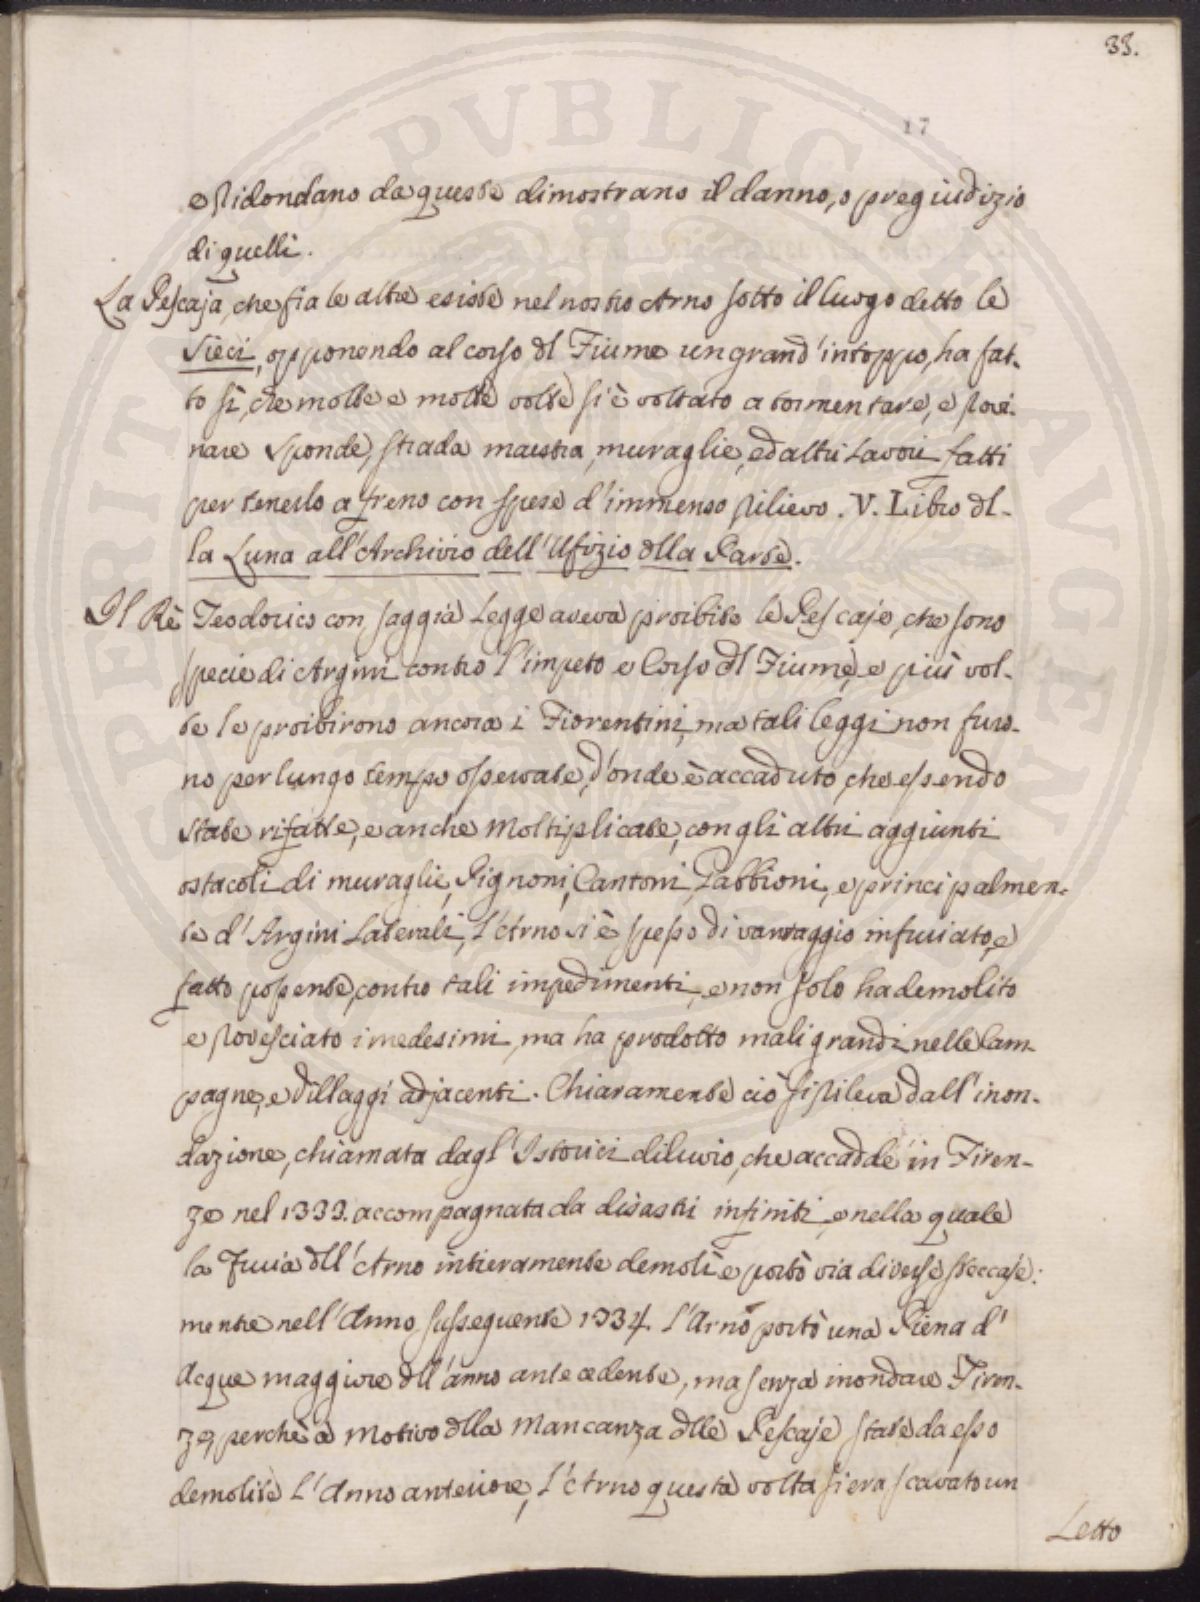 33.
17
e ridondano da queste dimostrano il danno, o pregiudizio
di quelli.
La Pescaja, che fra le altre esiste nel nostro Arno sotto il luogo detto le
Sieci, opponendo al corso dl Fiume un grand' intoppo, ha fat-
to sì, che molte e molte volte si è voltato a tormentare, e rovi-
nare sponde, strada maestra, muraglie, ed altri Lavori fatti
per tenerlo a freno con spese d'immenso rilievo. V. Libro dl-
la Luna all'Archivio dell'Ufizio dlla Parte.
Il Rè Teodorico con saggia Legge aveva proibito le Pescaje, che sono
specie di Argini contro l'impeto e Corso dl Fiume, e più vol-
te le proibirono ancora i Fiorentini, ma tali leggi non furo-
no per lungo tempo osservate, d'onde è accaduto, che essendo
state rifatte, e anche moltiplicate, con gli altri aggiunti
ostacoli di muraglie, Pignoni, Cantoni, Gabbioni, e principalmen-
te d'Argini Laterali, l'Arno si è spesso di vantaggio infuriato, e
fatto possente, contro tali impedimenti, e non solo ha demolito
e rovesciato i medesimi, ma ha prodotto mali grandi nelle Cam-
pagne, e Villaggi adjacenti. Chiaramente ciò si rileva dall'inon-
dazione, chiamata dagl'Istorici diluvio, che accadde in Firen-
ze nel 1333. accompagnata da disastri infiniti, e nella quale
la Furia dll'Arno intieramente demolì e portò via diverse steccaje:
mentre nell'Anno susseguente 1334. l'Arno portò una Piena d'
Acque maggiore dll'anno antecedente, ma senza inondare Firen-
ze, perchè a motivo dlla mancanza dlle Pescaje state da esso
demolite l'Anno anteriore, l'Arno questa volta si era scavato un
Letto